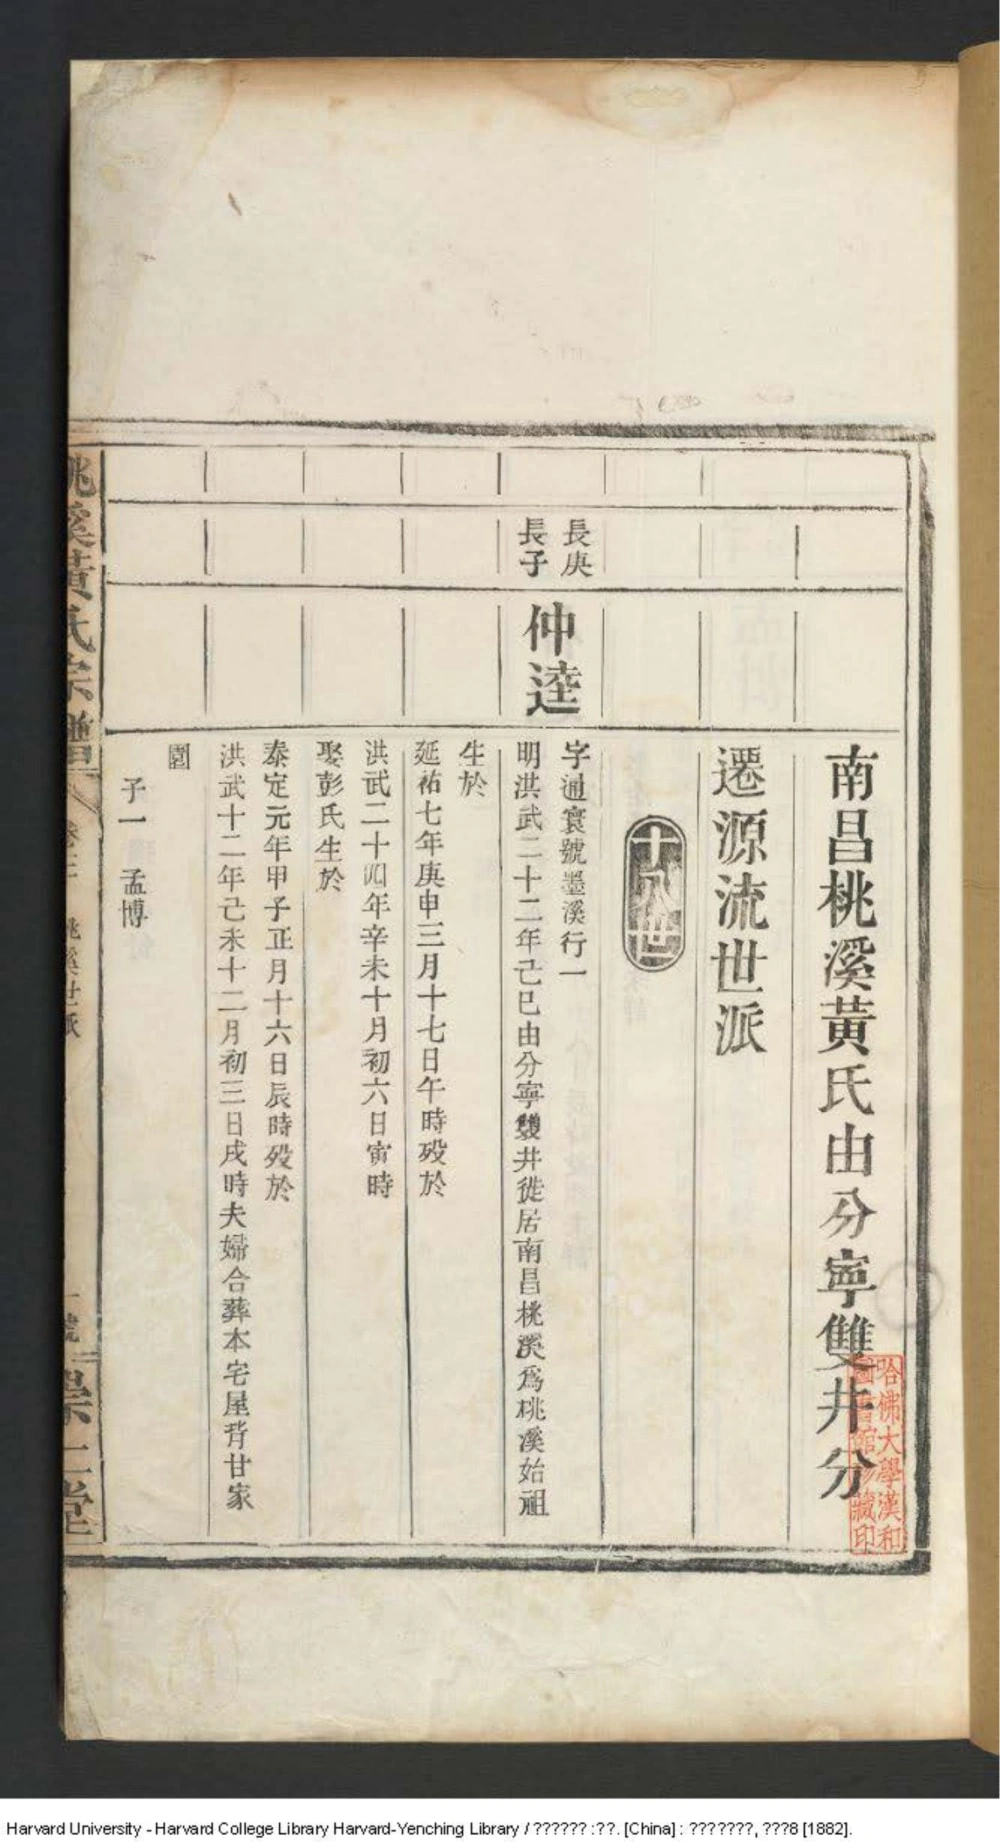 南昌桃溪黃氏由分寧雙井分
遷源流世派
十八世
長庚
長子
仲逵
字通寰號墨溪行一
明洪武二十二年己巳由分寧雙井徙居南昌桃溪為桃溪始祖
生於
延祐七年庚申三月十七日午時歿於
洪武二十四年辛未十月初六日寅時
娶彭氏生於
泰定元年甲子正月十六日辰時歿於
洪武十二年己未十二月初三日戌時夫婦合葬本宅屋背甘家
園
子一 孟博
桃溪黃氏宗譜
桃溪世派
哈佛大學漢和
圖書館珍藏印
Harvard University - Harvard College Library Harvard-Yenching Library / ?????? :??. [China] : ???????, ???8 [1882].